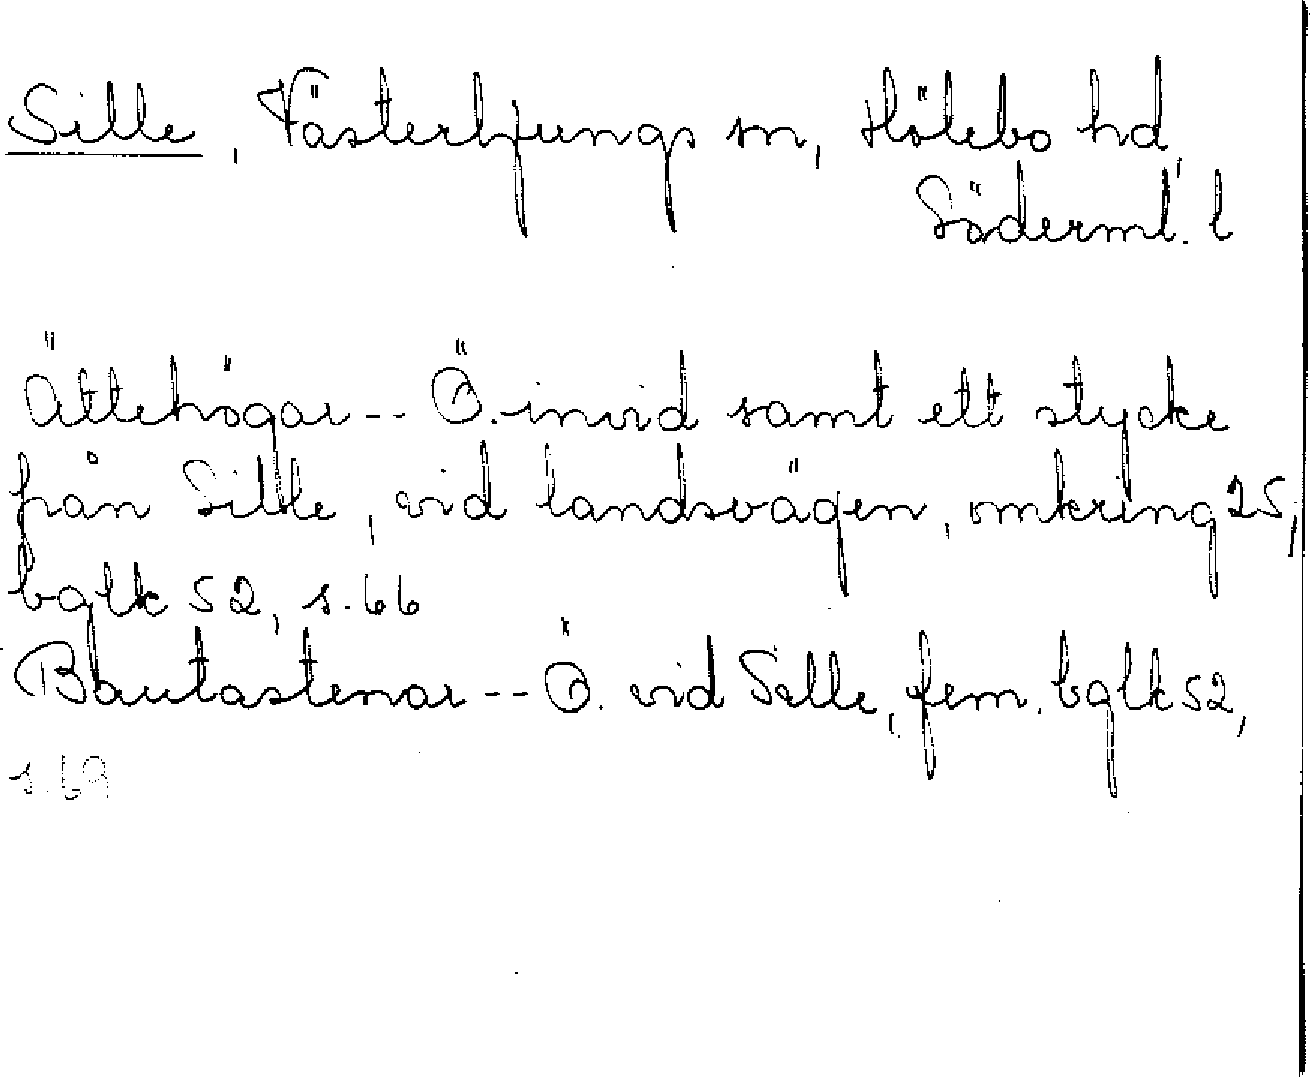 Sille, Västerljungs sn, Hölebo hd,
Söderml. l
Ättehögar -- Ö. invid samt ett stycke
från Sille, vid landsvägen, omkring 25,
bglk 52, s. 66
Bautastenar -- Ö. vid Sille, fem. bglk 52,
s. 69